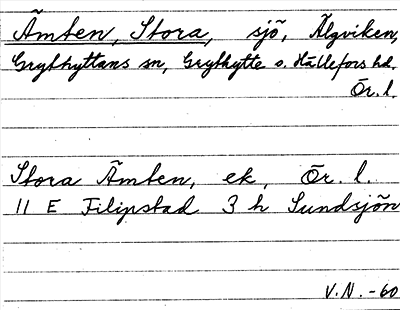 Ämten, Stora, sjö, Älgviken,
Grythyttans sn, Grythytte o. Hällefors hd.
Ör. l.
Stora Ämten, ek, Ör. l.
11 E Filipstad 3 h Sundsjön
V.N. -60